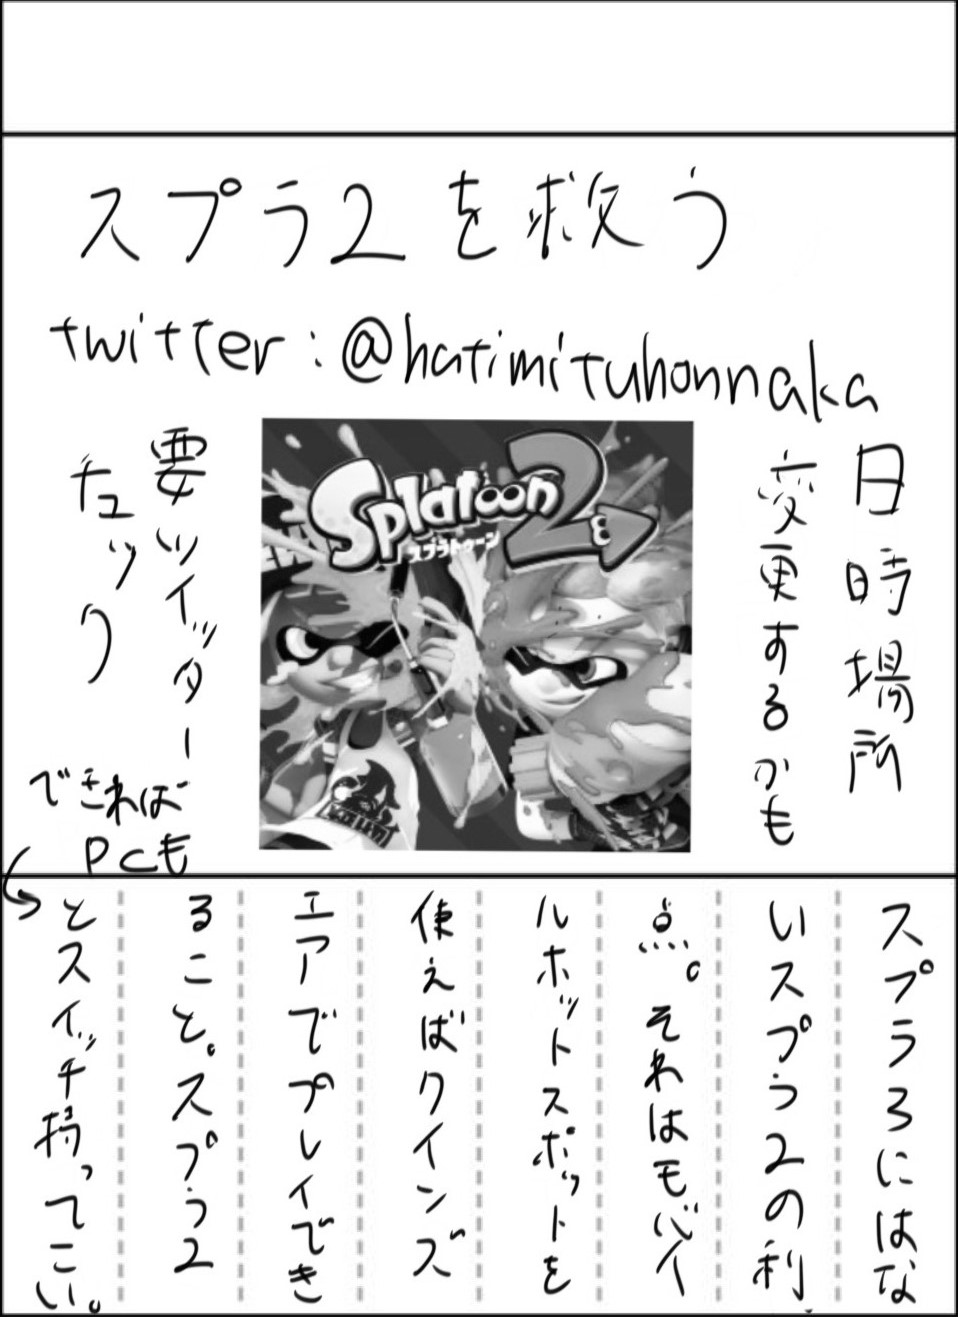 スプラ2を救う
twitter:@hatimituhonnaka
日時場所
変更するかも
Splatoon 2
スプラトゥーン
要ツイッター
チェック
できれば
PCも
スプラ3にはな
いスプラ2の利
点。それはモバイ
ルホットスポットを
使えばクインズ
エアでプレイでき
ること。スプラ2
とスイッチ持ってこい。